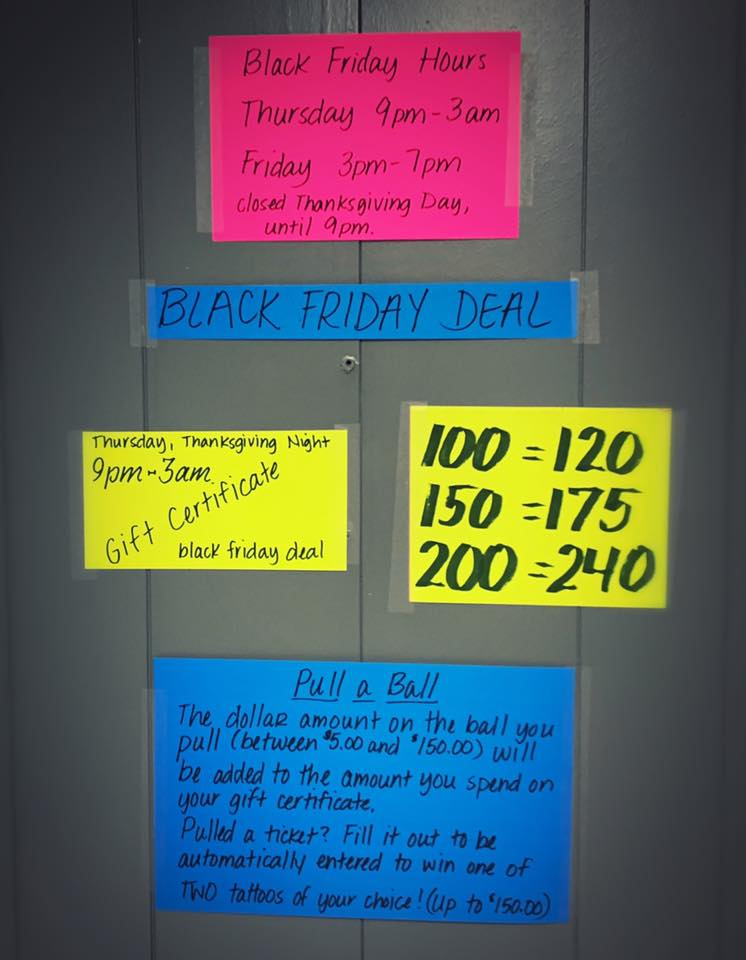 Black Friday Hours
Thursday 9pm-3am
Friday 3pm-7pm
closed Thanksgiving Day,
until 9pm.
BLACK FRIDAY DEAL
Thursday, Thanksgiving Night
9pm-3am
Gift Certificate
black friday deal
100=120
150=175
200=240
Pull a Ball
The dollar amount on the ball you
pull (between $5.00 and $150.00) will
be added to the amount you spend on
your gift certificate.
Pulled a ticket? Fill it out to be
automatically entered to win one of
TWO tattoos of your choice! (Up to $150.00)